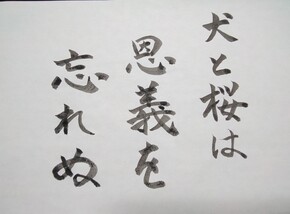 犬と桜は
恩義を
忘れぬ